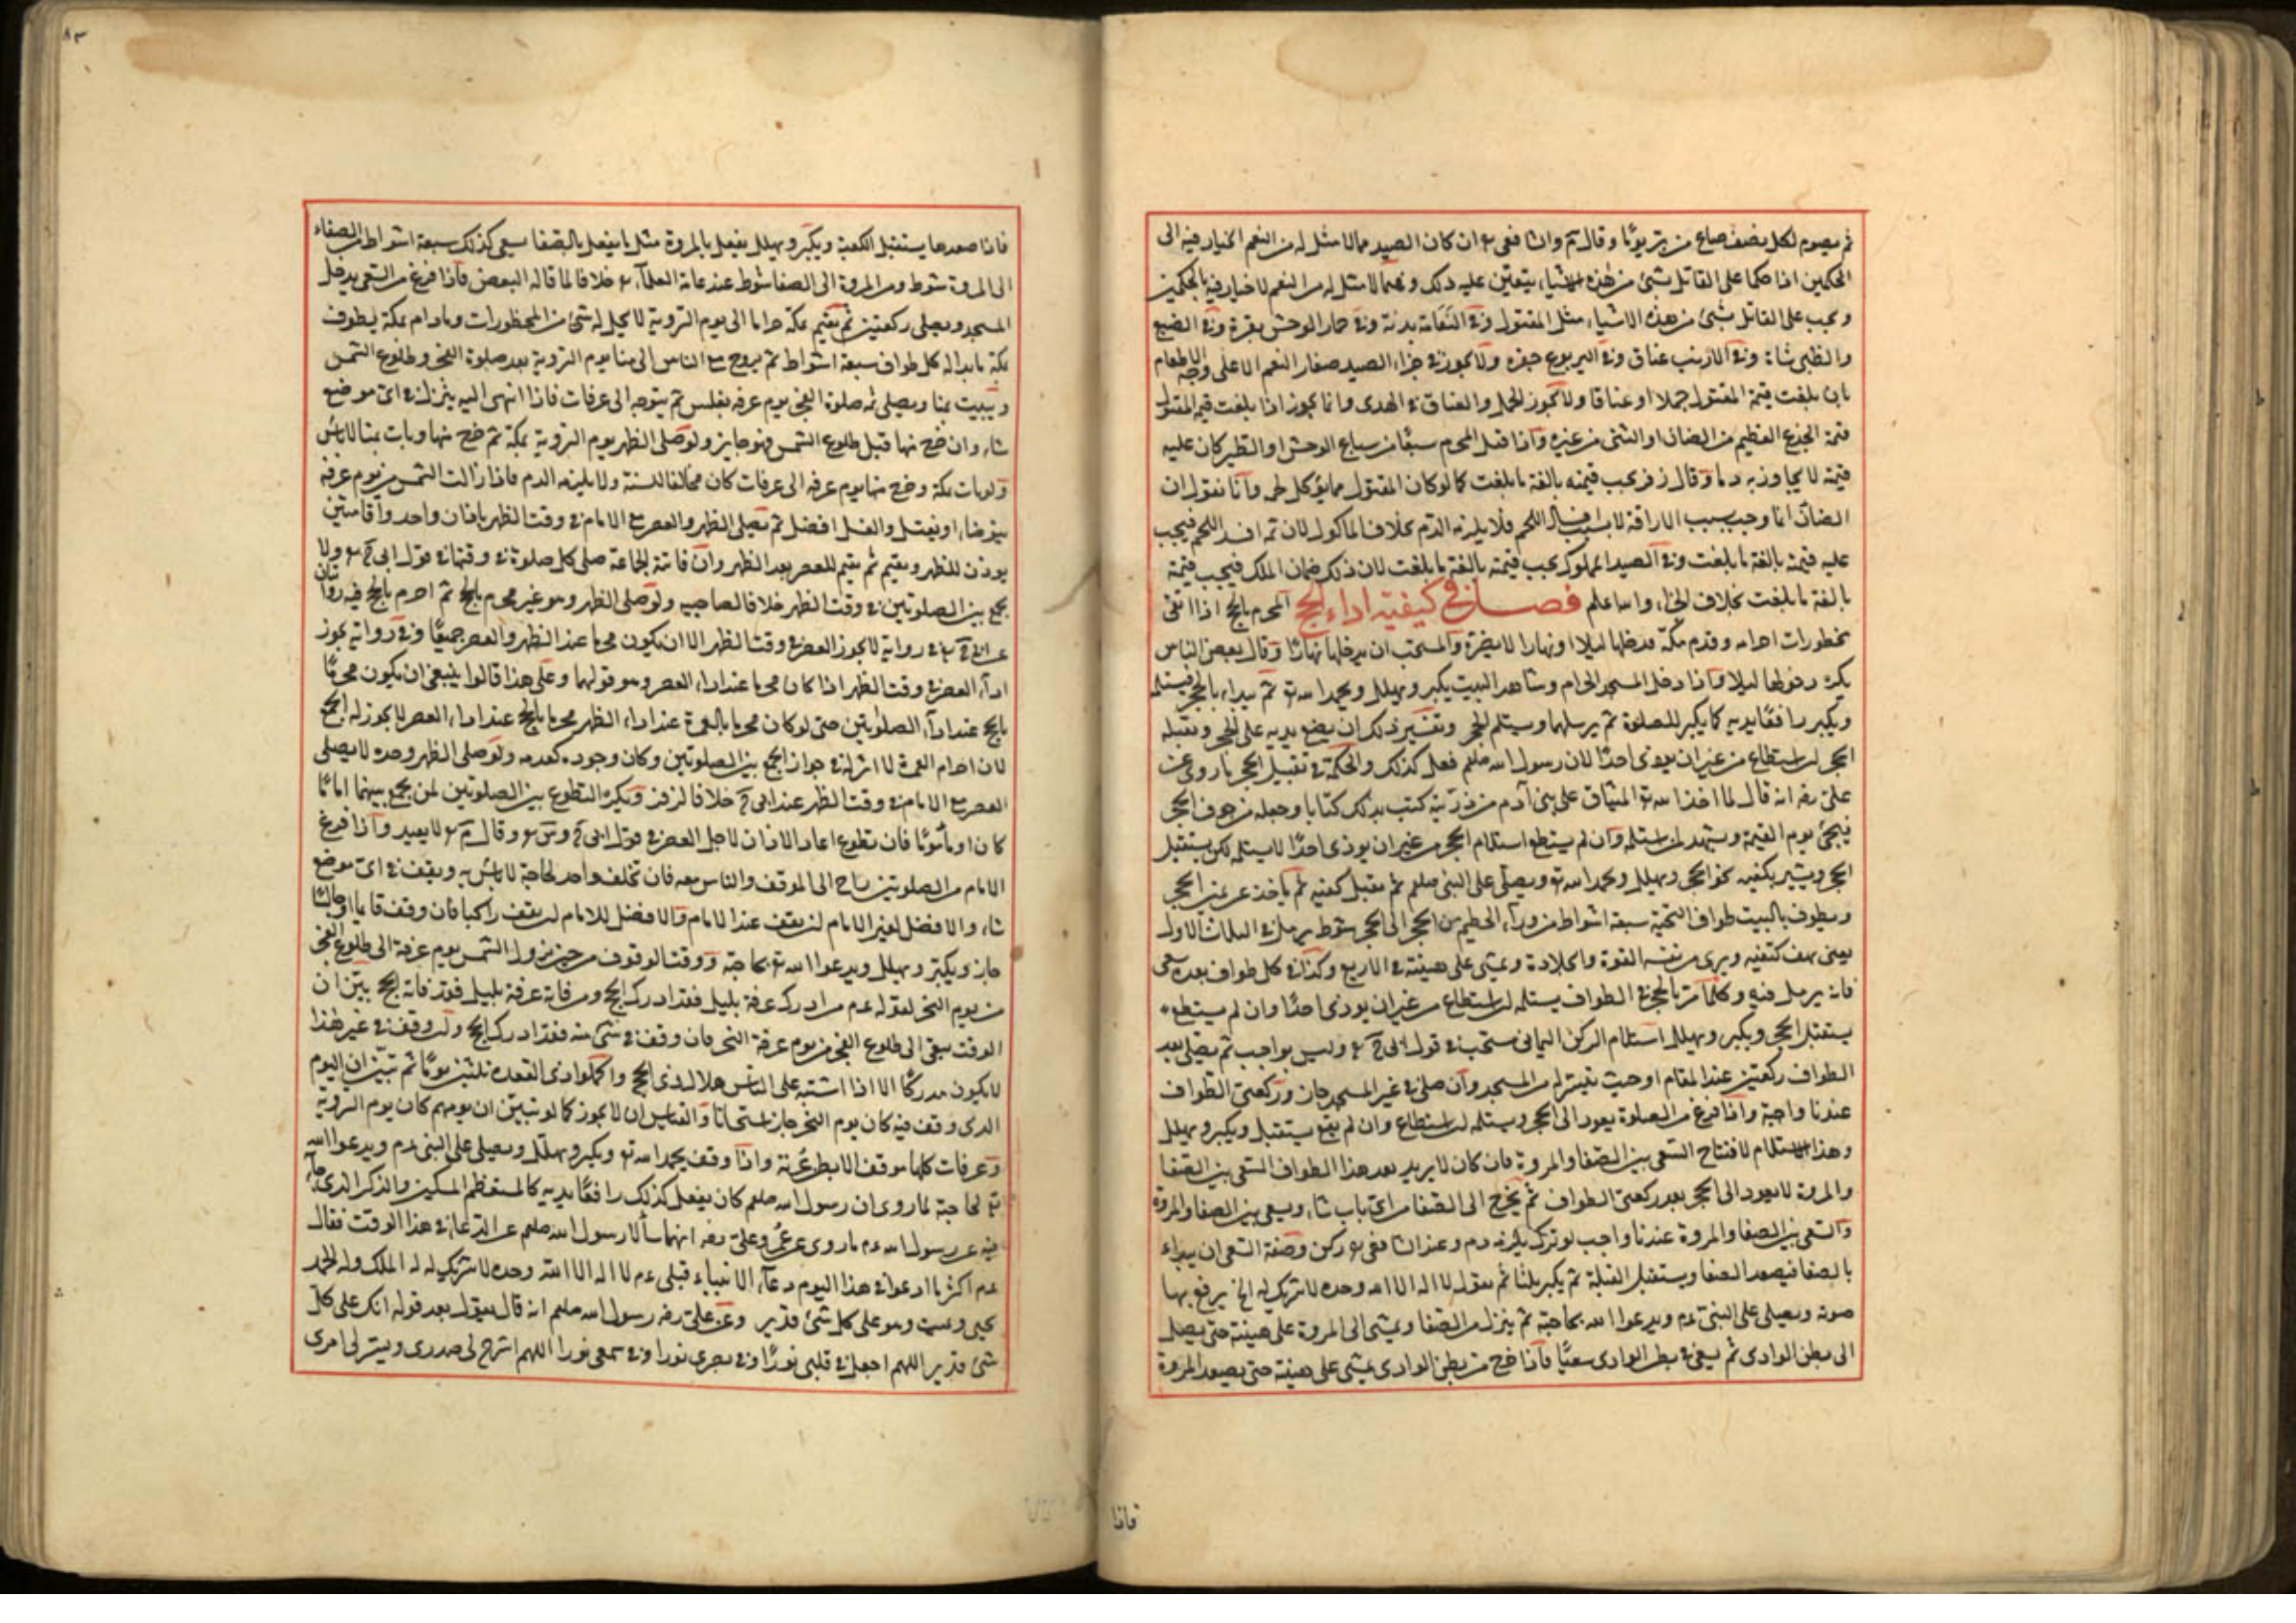 ثم يصوم لكل نصف صاع من بر يومًا وقال م والشافعى ان كان الصيد مما له مثل له من النعم الخيار فيه الى
الحكمين اذا حكما على القاتل بشئ من هذه الاشياء يتعين عليه ذلك وفيما لا مثل له من النعم لا خيار فيه للحكمين
ويجب على القاتل شئ من هذه الاشياء مثل المقتول وفى النعامة بدنة وفى حمار الوحش بقرة وفى الضبع
والظبى شاة وفى الارنب عناق وفى اليربوع جفرة ولا يجوز فى جزاء الصيد صغار النعم الا على وجه الاطعام
بان بلغت قيمة المقتول حملا او عناقا ولا يجوز الحمل والعناق فى الهدى وانما يجوز اذا بلغت قيمة المقتول
قيمة الجذع العظيم من الضان او الثنى من غيره واذا قتل المحرم سبعًا من سباع الوحش او الطير كان عليه
قيمة لا يجاوز به دما وقال زفر يجب قيمته بالغة ما بلغت كما لو كان المقتول مما يؤكل لحمه وانا نقول ان
الضمان انما وجب بسبب الاراقة لا بسبب فساد اللحم فلا يلزمه الدم بخلاف الماكول لان ثمه افسد اللحم فيجب
عليه قيمته بالغة ما بلغت وفى الصيد المملوك يجب قيمته بالغة ما بلغت لان ذلك ضمان الملك فيجب قيمة
بالغة ما بلغت بخلاف الجزاء والله اعلم فصل فى كيفية اداء الحج المحرم بالحج اذا اتقى
محظورات احرامه وقدم مكة فدخلها ليلا او نهارا لا يضره والمستحب ان يدخلها نهارًا وقال بعض الناس
يكره دخولها ليلا واذا دخل المسجد الحرام وشاهد البيت يكبر ويهلل ويحمد الله تع ثم يبداء بالحجر فيستلمه
ويكبر رافعًا يديه كما يكبر للصلوة ثم يرسلهما ويستلم الحجر وتفسير ذلك ان يضع يديه على الحجر ويقبله
الحجر ان استطاع من غير ان يوذى احدًا لان رسول الله صلعم فعل كذلك والحكمة فى تقبيل الحجر ما روى عن
على رضه انه قال لما اخذ الله تع الميثاق على بنى آدم من ذريته كتب بذلك كتابا وجعله من جوف الحجر
فيجئ يوم القيمة ويشهد لمن استلمه وان لم يستطع استلام الحجر من غير ان يوذى احدًا لا يستلمه لكن يستقبل
الحجر ويشير بكفيه نحو الحجر ويهلل ويحمد الله تع ويصلى على النبى صلعم ثم يقبل كفيه ثم ياخذ عن يمين الحجر
ويطوف بالبيت طواف التحية سبعة اشواط من وراء الحطيم من الحجر الى الحجر شوط يرمل فى الثلاث الاول
يعنى يهز كتفيه ويرى من نفسه القوة والجلادة ويمشى على هينته فى الاربع وكذا فى كل طواف بعده سعى
فانه يرمل فيه وكلما مر بالحجر فى الطواف يستلمه ان استطاع من غير ان يوذى احدًا وان لم يستطع
يستقبل الحجر ويكبر ويهلل استلام الركن اليمانى مستحب فى قول ابى ح وليس بواجب ثم يصلى بعد
الطواف ركعتين عند المقام او حيث تيسر له من المسجد وان صلى فى غير المسجد جاز وركعتى الطواف
عندنا واجبة واذا فرغ من الصلوة يعود الى الحجر ويستلمه ان استطاع وان لم يستطع يستقبل ويكبر ويهلل
وهذا الاستلام لافتتاح السعى بين الصفا والمروة فان كان لا يريد بعد هذا الطواف السعى بين الصفا
والمروة لا يعود الى الحجر بعد ركعتى الطواف ثم يخرج الى الصفا من اى باب شاء ويسعى بين الصفا والمروة
والسعى بين الصفا والمروة عندنا واجب لو تركه يلزمه دم وعند الشافعى ركن وصفة السعى ان يبداء
بالصفا فيصعد الصفا ويستقبل القبلة ثم يكبر ثلثا ثم يقول لا اله الا الله وحده لا شريك له الخ يرفع بها
صوته ويصلى على النبى عم ويدعوا الله بحاجته ثم ينزل من الصفا ويمشى الى المروة على هينته حتى يصل
الى بطن الوادى ثم يسعى فى بطن الوادى سعيًا فاذا خرج من بطن الوادى يمشى على هينته حتى يصعد المروة
فاذا
٨٣
فاذا صعدها يستقبل الكعبة ويكبر ويهلل يفعل بالمروة مثل ما يفعل بالصفا يسعى كذلك سبعة اشواط من الصفاء
الى المروة شوط ومن المروة الى الصفا شوط عند عامة العلماء خلافا لما قاله البعض فاذا فرغ من السعى يدخل
المسجد ويصلى ركعتين ثم يقيم بمكة حراما الى يوم التروية لا يحل له شئ من المحظورات وما دام بمكة يطوف
بمكة ما بدا له كل طواف سبعة اشواط ثم يروح مع الناس الى منا يوم التروية بعد صلوة الفجر وطلوع الشمس
ويبيت بمنا ويصلى ثمه صلوة الفجر يوم عرفة بغلس ثم يتوجه الى عرفات فاذا انتهى اليه ينزل فى اى موضع
شاء وان خرج منها قبل طلوع الشمس فهو جايز ولو صلى الظهر يوم التروية بمكة ثم خرج منها وبات بمنا لا باس
ولو بات بمكة وخرج منها يوم عرفه الى عرفات كان مخالفا للسنة ولا يلزمه الدم فاذا زالت الشمس من يوم عرفة
يتوضاء او يغتسل والغسل افضل ثم يصلى الظهر والعصر مع الامام فى وقت الظهر باذان واحد واقامتين
يوذن للظهر ويقيم ثم يقيم للعصر بعد الظهر وان فاتته الجماعة صلى كل صلوة فى وقتها فى قول ابى ح ولا
يجمع بين الصلوتين فى وقت الظهر خلافا لصاحبيه ولو صلى الظهر وهو غير محرم بالحج ثم احرم بالحج فيه روايتان
عن ابى ح فى رواية لا يجوز العصر فى وقت الظهر الا ان يكون محرما عند الظهر والعصر جميعًا وفى رواية يجوز
اداء العصر فى وقت الظهر اذا كان محرما عند اداء العصر وهو قولهما وعلى هذا قالوا ينبغى ان يكون محرمًا
بالحج عند اداء الصلوتين حتى لو كان محرما بالعمرة عند اداء الظهر محرما بالحج عند اداء العصر لا يجوز له الجمع
لان احرام العمرة لا اثر له فى جواز الجمع بين الصلوتين وكان وجوده كعدمه ولو صلى الظهر وحده لا يصلى
العصر مع الامام فى وقت الظهر عند ابى ح خلافا لزفر ويكره التطوع بين الصلوتين لمن يجمع بينهما امامًا
كان او مأمومًا فان تطوع اعاد الاذان لاجل العصر فى قول ابى ح وس وقال م لا يعيد واذا فرغ
الامام من الصلوتين راح الى الموقف والناس معه فان تخلف واحد لحاجة لا باس به ويقف فى اى موضع
شاء والافضل لغير الامام ان يقف عند الامام والافضل للامام ان يقف راكبا فان وقف قايما او جالسًا
جاز ويكبر ويهلل ويدعوا الله تع بحاجته ووقت الوقوف من حين زول الشمس يوم عرفة الى طلوع الفجر
من يوم النحر لقوله عم من ادرك عرفة بليل فقد ادرك الحج ومن فاته عرفة بليل فقد فاته الحج بين ان
الوقت يبقى الى طلوع الفجر من يوم عرفة النحر فان وقف فى شئ منه فقد ادرك الحج ولو وقف فى غير هذا
لا يكون مدركًا الا اذا اشتبه على الناس هلال ذى الحج واكملوا ذى القعدة ثلثين يومًا ثم تبين ان اليوم
الذى وقف فيه كان يوم النحر جاز استحسانا والقياس ان لا يجوز كما لو تبين ان يومهم كان يوم التروية
وعرفات كلها موقف الا بطن عرنة واذا وقف يحمد الله تع ويكبر ويهلل ويصلى على النبى عم ويدعوا الله
تع لحاجته لما روى ان رسول الله صلعم كان يفعل كذلك رافعًا يديه كالمستطعم المسكين والذكر الذى جاء
فيه عن رسول الله عم ما روى عن عمر وعلى رضه انهما سألا رسول الله صلعم عن الدعاء فى هذا الوقت فقال
عم اكثر ما ادعوا فى هذا اليوم دعاء الانبياء قبلى عم لا اله الا الله وحده لا شريك له له الملك وله الحمد
يحيى ويميت وهو على كل شئ قدير وعن على رضه رسول الله صلعم انه قال يقول بعد قوله انك على كل
شئ قدير اللهم اجعل فى قلبى نورًا وفى بصرى نورا وفى سمعى نورا اللهم اشرح لى صدرى ويسر لى امرى